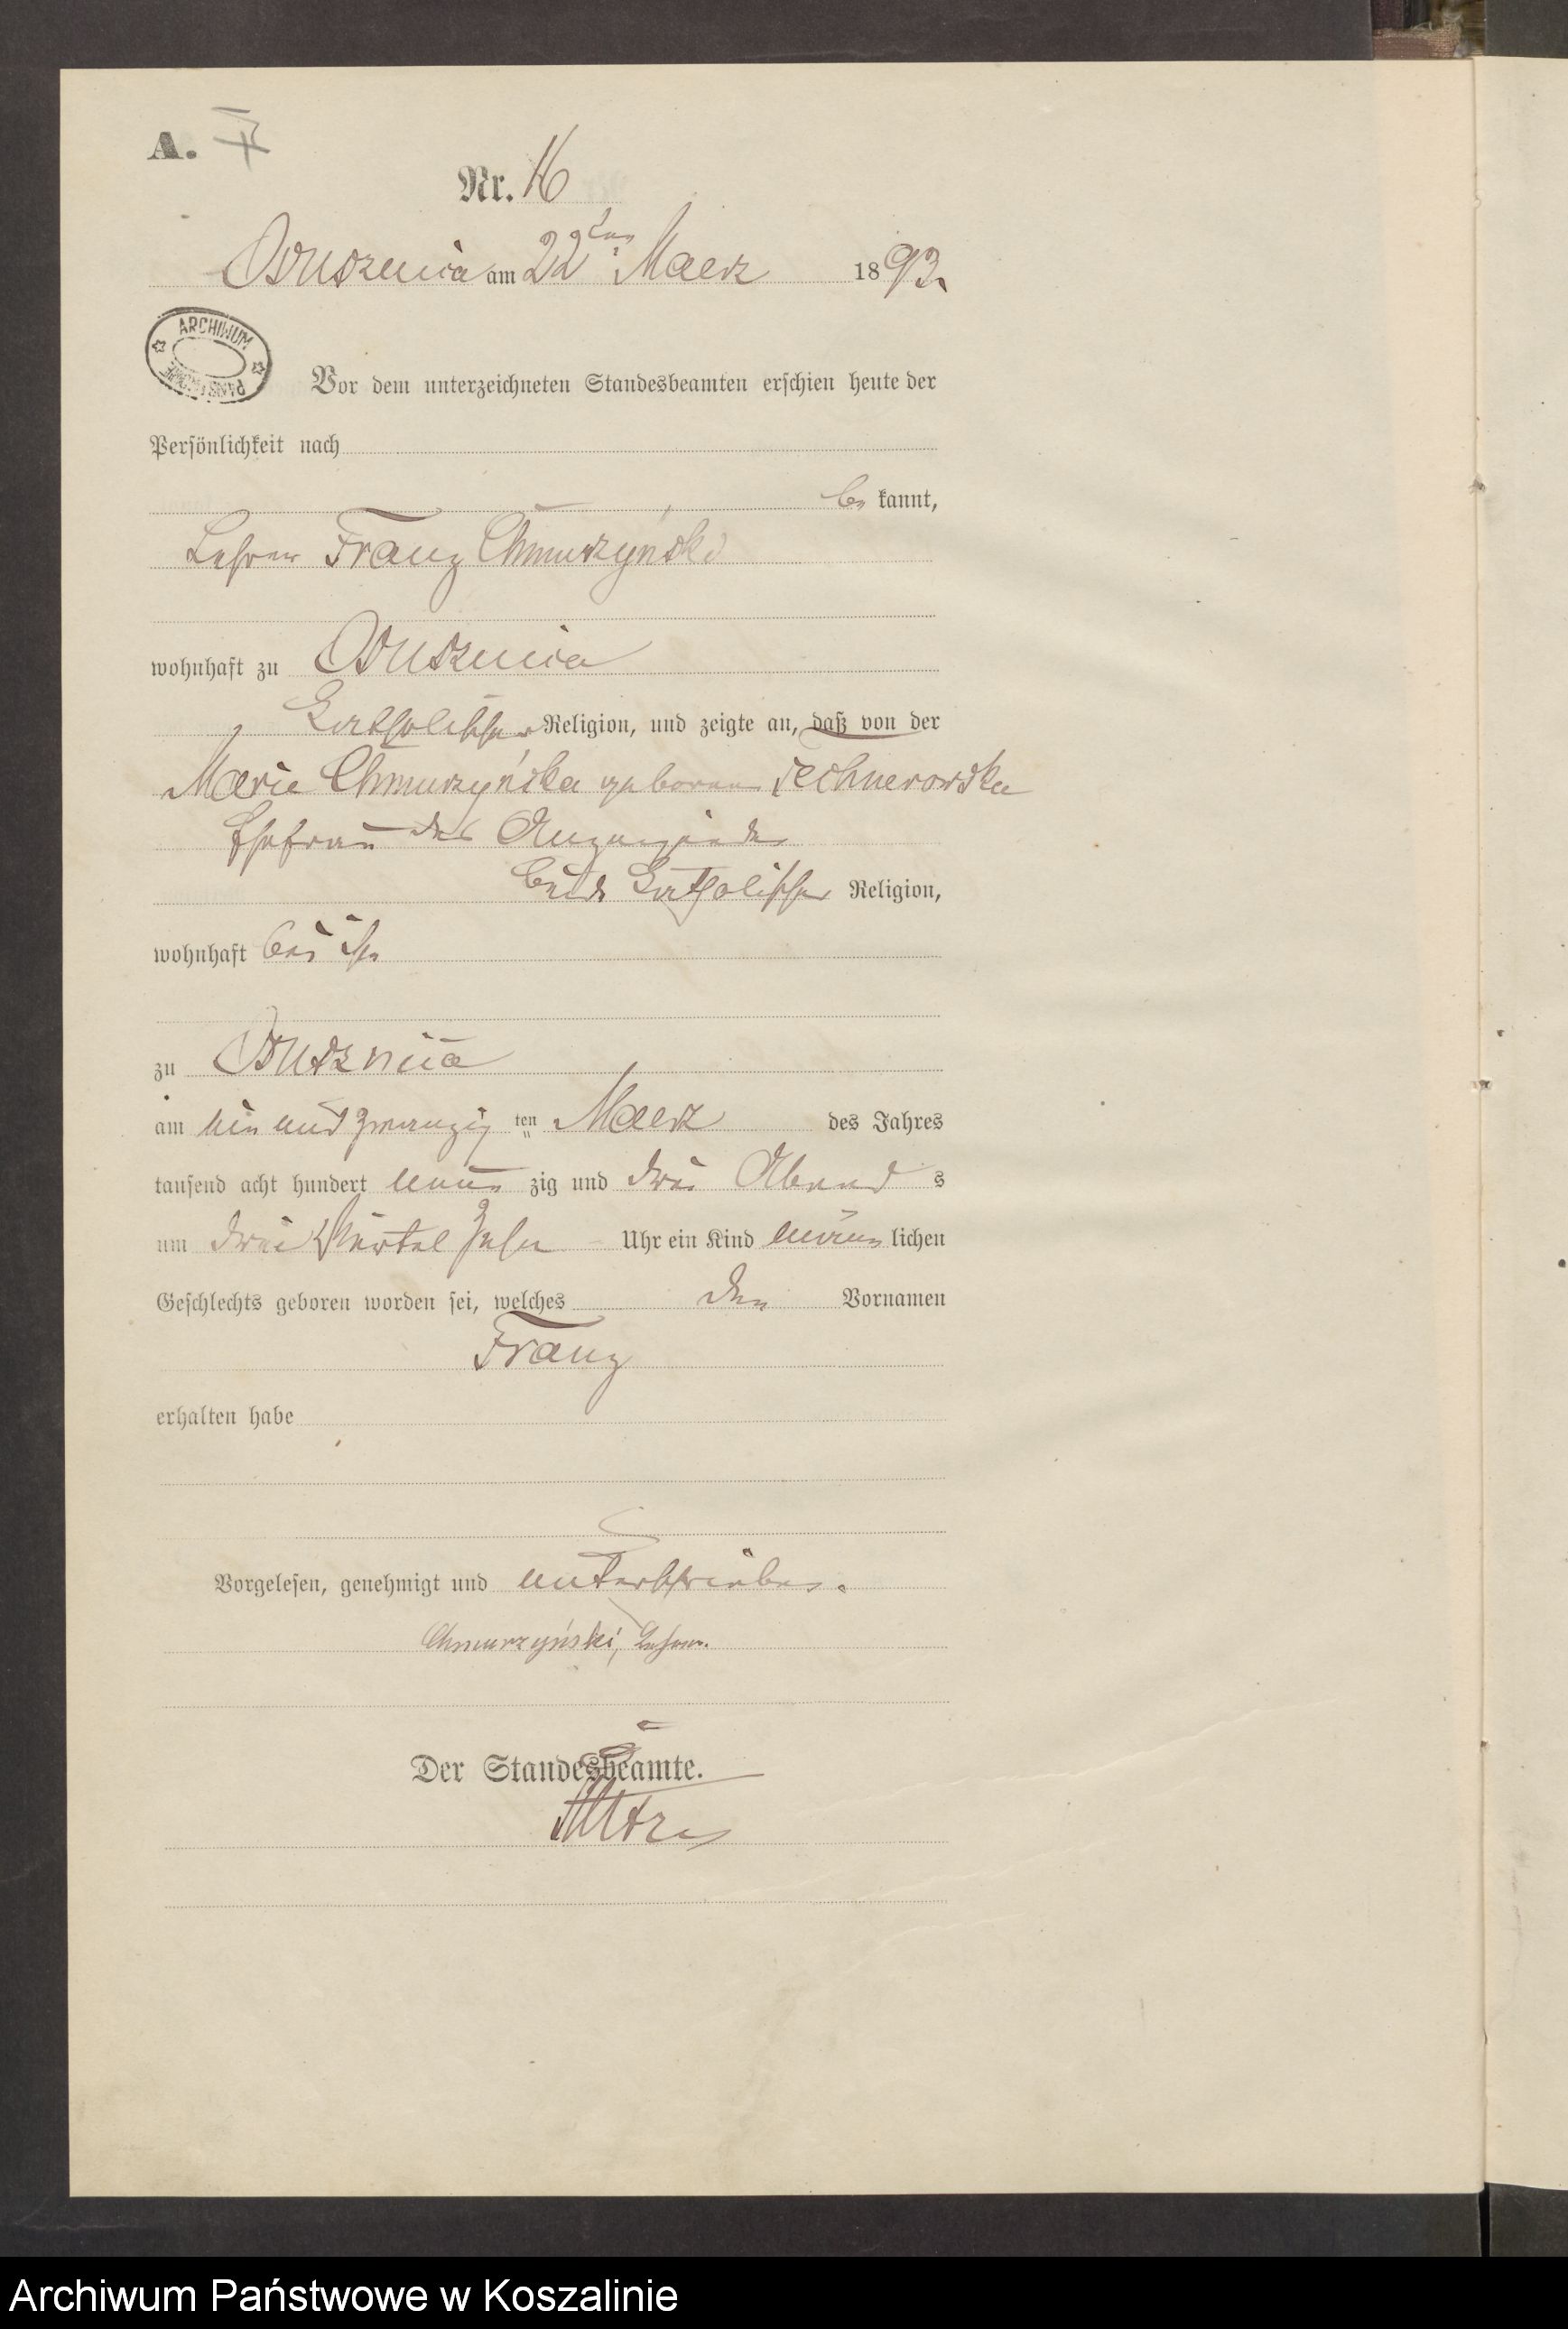 A.
Nr. 16
Ossuszniça am 22ten Maerz 1893.
ARCHIWUM
PAŃSTWOWE
Vor dem unterzeichneten Standesbeamten erschien heute der
Persönlichkeit nach
be kannt,
Lehrer Franz Chmurzyński
wohnhaft zu
katholischer Religion, und zeigte an, daß von der
Marie Chmurzyńska geborene
Ehefrau des Anzeigenden
beide katholischer Religion,
wohnhaft bei ihm
zu
am ein und zwanzig ten Maerz des Jahres
tausend acht hundert neun zig und drei Abend s
um drei Viertel Zehn Uhr ein Kind männ lichen
Geschlechts geboren worden sei, welches den Vornamen
Franz
erhalten habe
Vorgelesen, genehmigt und unterschrieben.
Chmurzyński, Lehrer.
Der Standesbeamte.
Archiwum Państwowe w Koszalinie